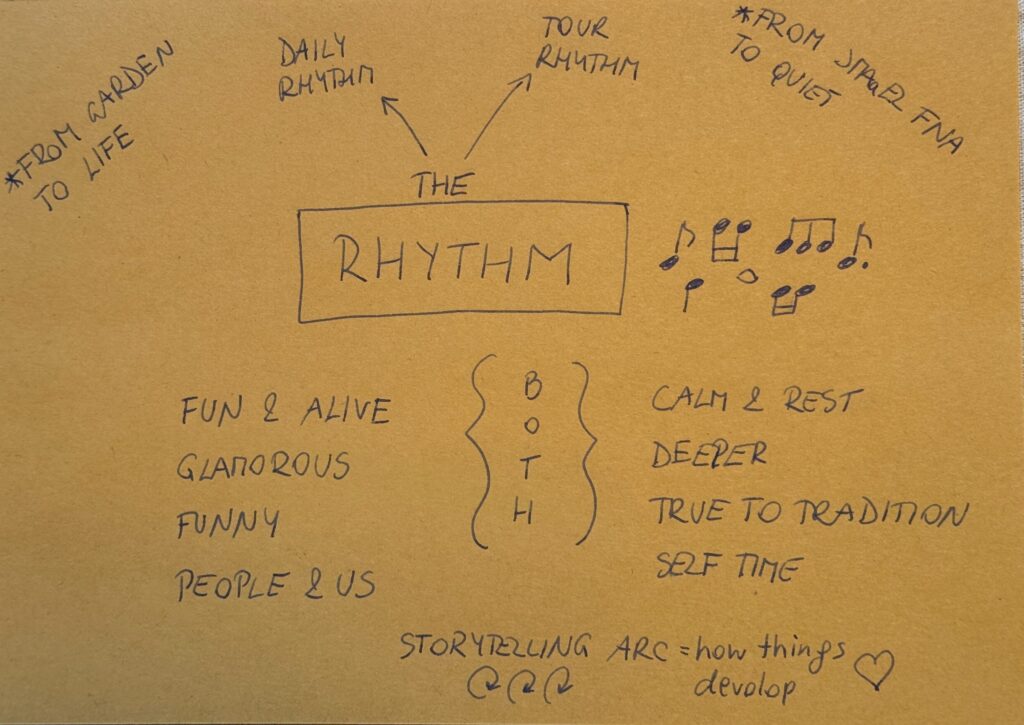 *FROM GARDEN
TO LIFE
DAILY
RHYTHM
TOUR
RHYTHM
*FROM FNA
TO QUIET
THE
RHYTHM
BOTH
FUN & ALIVE
GLAMOROUS
FUNNY
PEOPLE & US
CALM & REST
DEEPER
TRUE TO TRADITION
SELF TIME
STORYTELLING ARC = how things
devolop